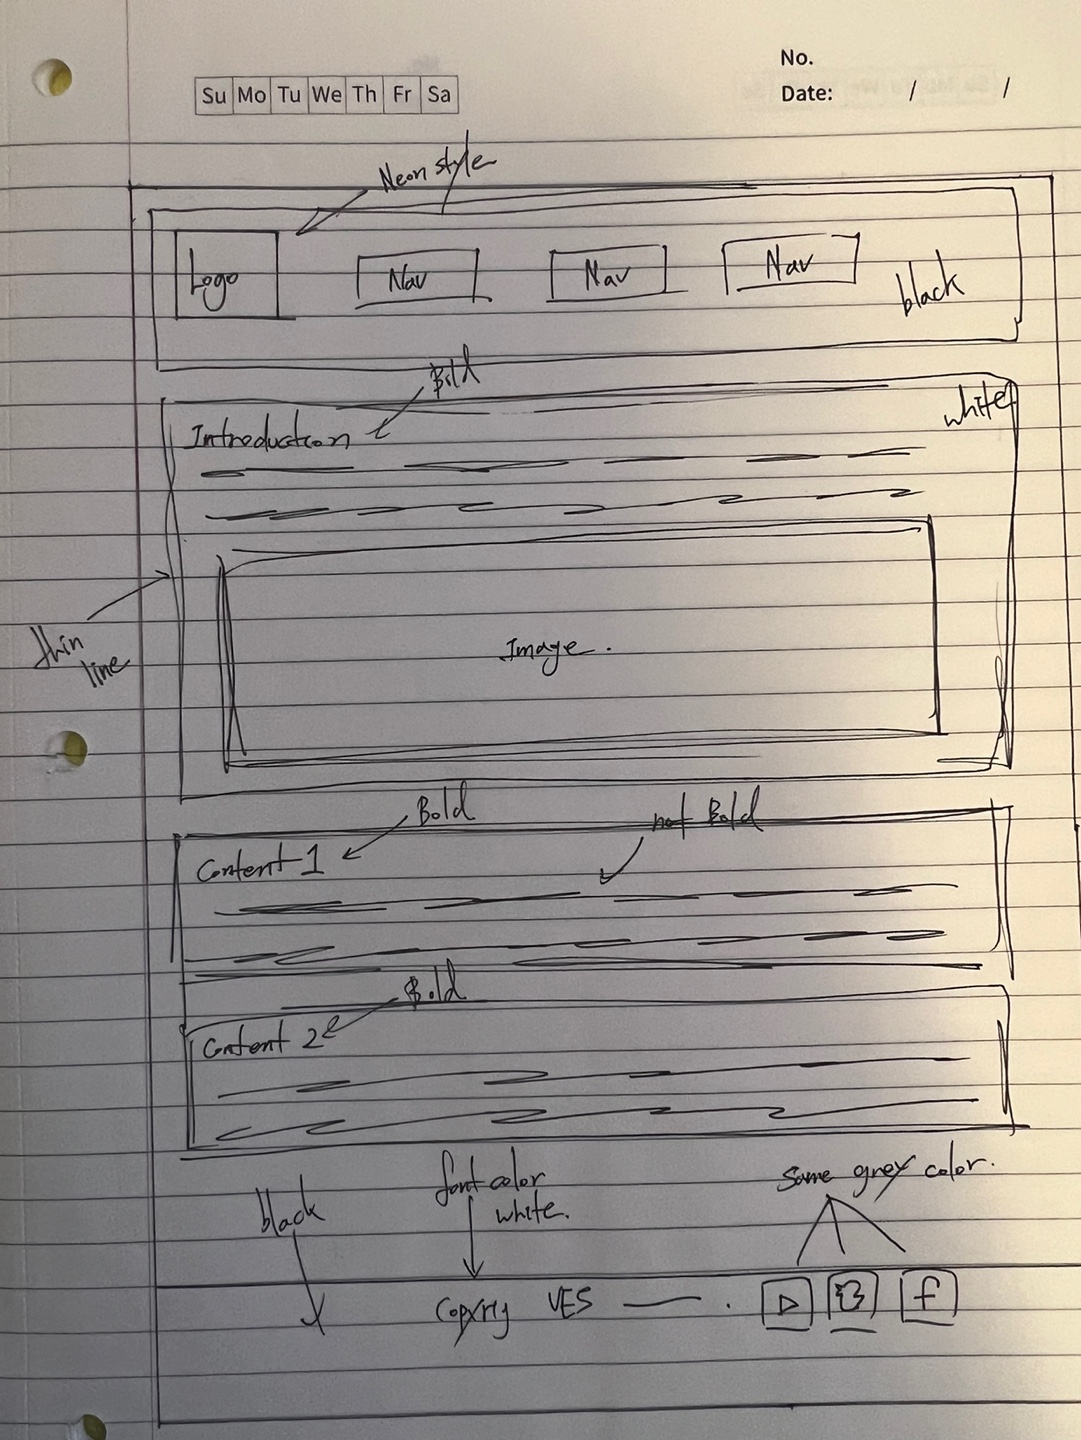 No.
Su Mo Tu We Th Fr Sa
Date: / /
Neon style
Logo
Nav
Nav
Nav
black
Bold
white
Introduction
thin
line
Image.
Bold
not Bold
Content 1
Bold
Content 2
black
font color
white.
Same grey color.
VES
f